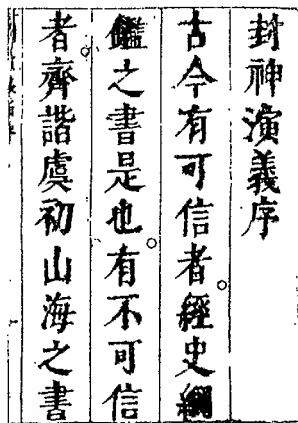 封神演義序
古今有可信者經史綱
鑑之書是也。有不可信
者。齊諧虞初山海之書